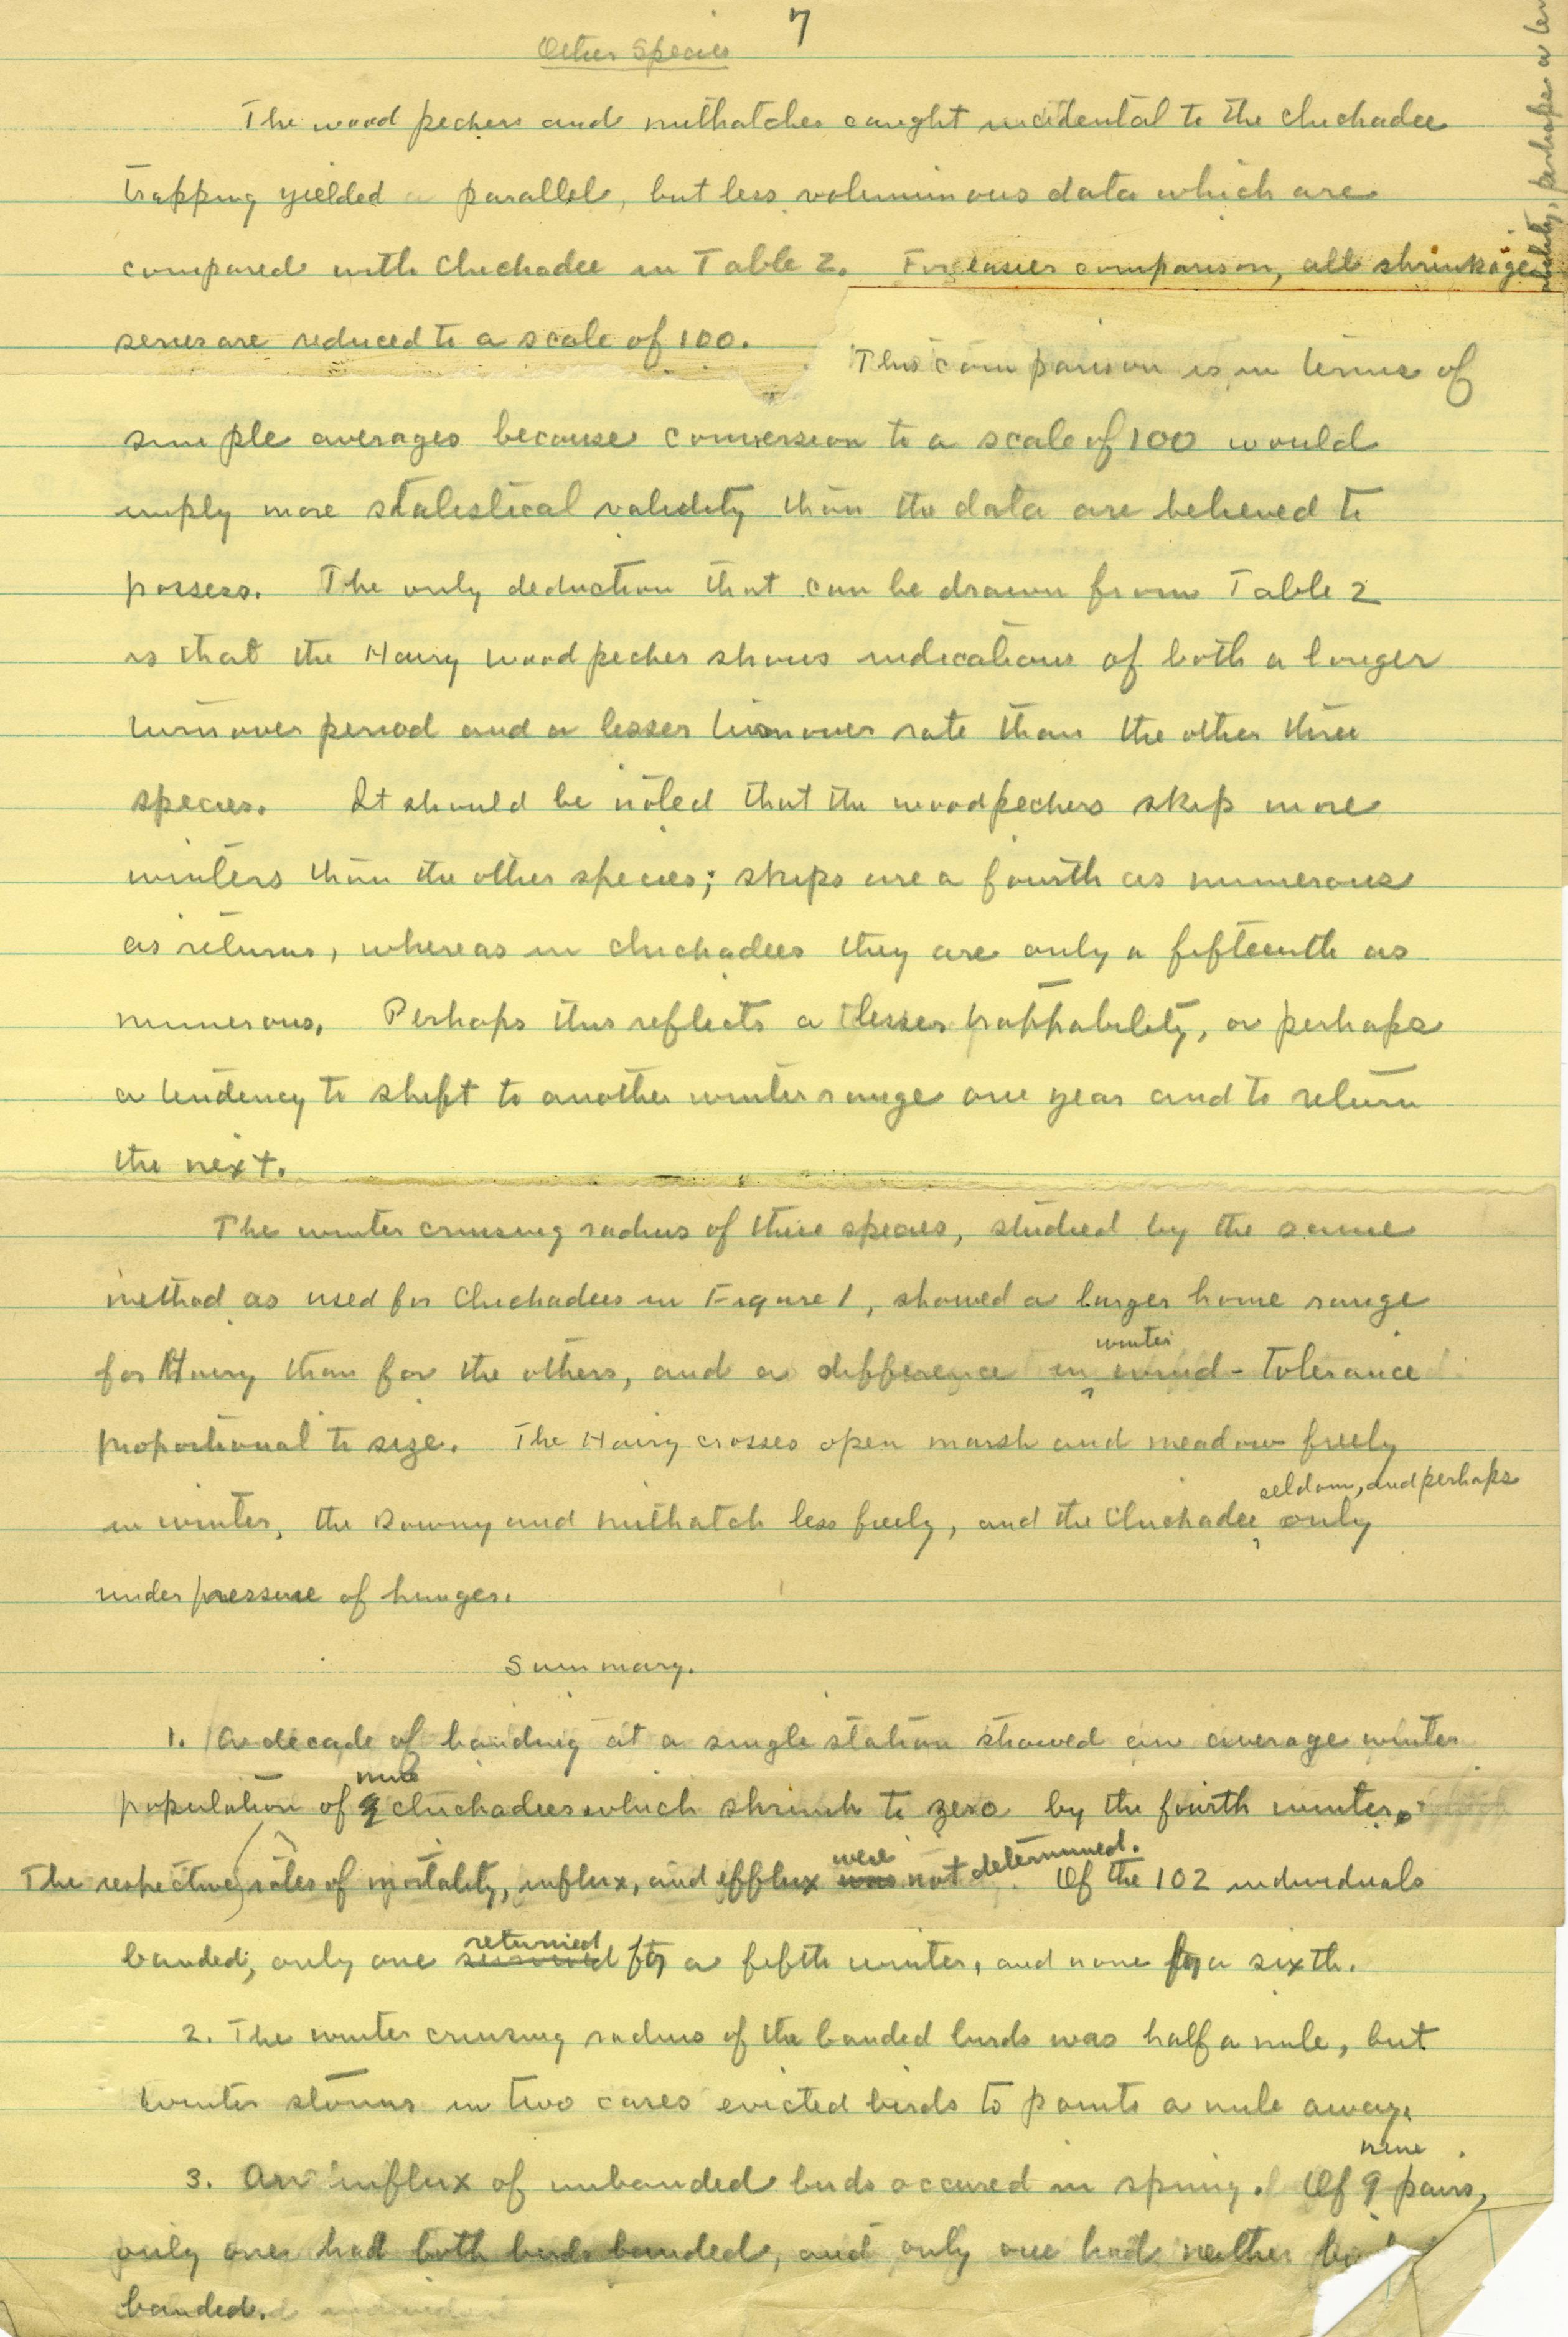 7
Other Species
The woodpeckers and nuthatches caught incidental to the chickadee
trapping yielded parallel, but less voluminous data which are
compared with Chickadee in Table 2. For easier comparison, all shrinkage
series are reduced to a scale of 100.
This comparison is in terms of
simple averages because conversion to a scale of 100 would
imply more statistical validity than the data are believed to
possess. The only deduction that can be drawn from Table 2
is that the Hairy Woodpecker shows indications of both a longer
turnover period and a lesser turnover rate than the other three
species. It should be noted that the woodpeckers skip more
winters than the other species; skips are a fourth as numerous
as returns, whereas in chickadees they are only a fifteenth as
numerous. Perhaps this reflects a lesser trappability, or perhaps
a tendency to shift to another winter range one year and to return
the next.
The winter cruising radius of these species, studied by the same
method as used for Chickadees in Figure 1, showed a larger home range
for Hairy than for the others, and a difference in winter wind-tolerance
proportional to size. The Hairy crosses open marsh and meadow freely
in winter, the Downy and Nuthatch less freely, and the Chickadee seldom, and perhaps only
under pressure of hunger.
Summary.
1. A decade of banding at a single station showed an average winter
population of nine chickadees which shrink to zero by the fourth winter.
The respective rates of mortality, influx, and efflux were not determined. Of the 102 individuals
banded, only one returned for a fifth winter, and none for a sixth.
2. The winter cruising radius of the banded birds was half a mile, but
winter storms in two cases evicted birds to points a mile away.
3. An influx of unbanded birds occured in spring. Of 9 nine pairs,
only one had both birds banded, and only one had neither
banded.
perhaps a